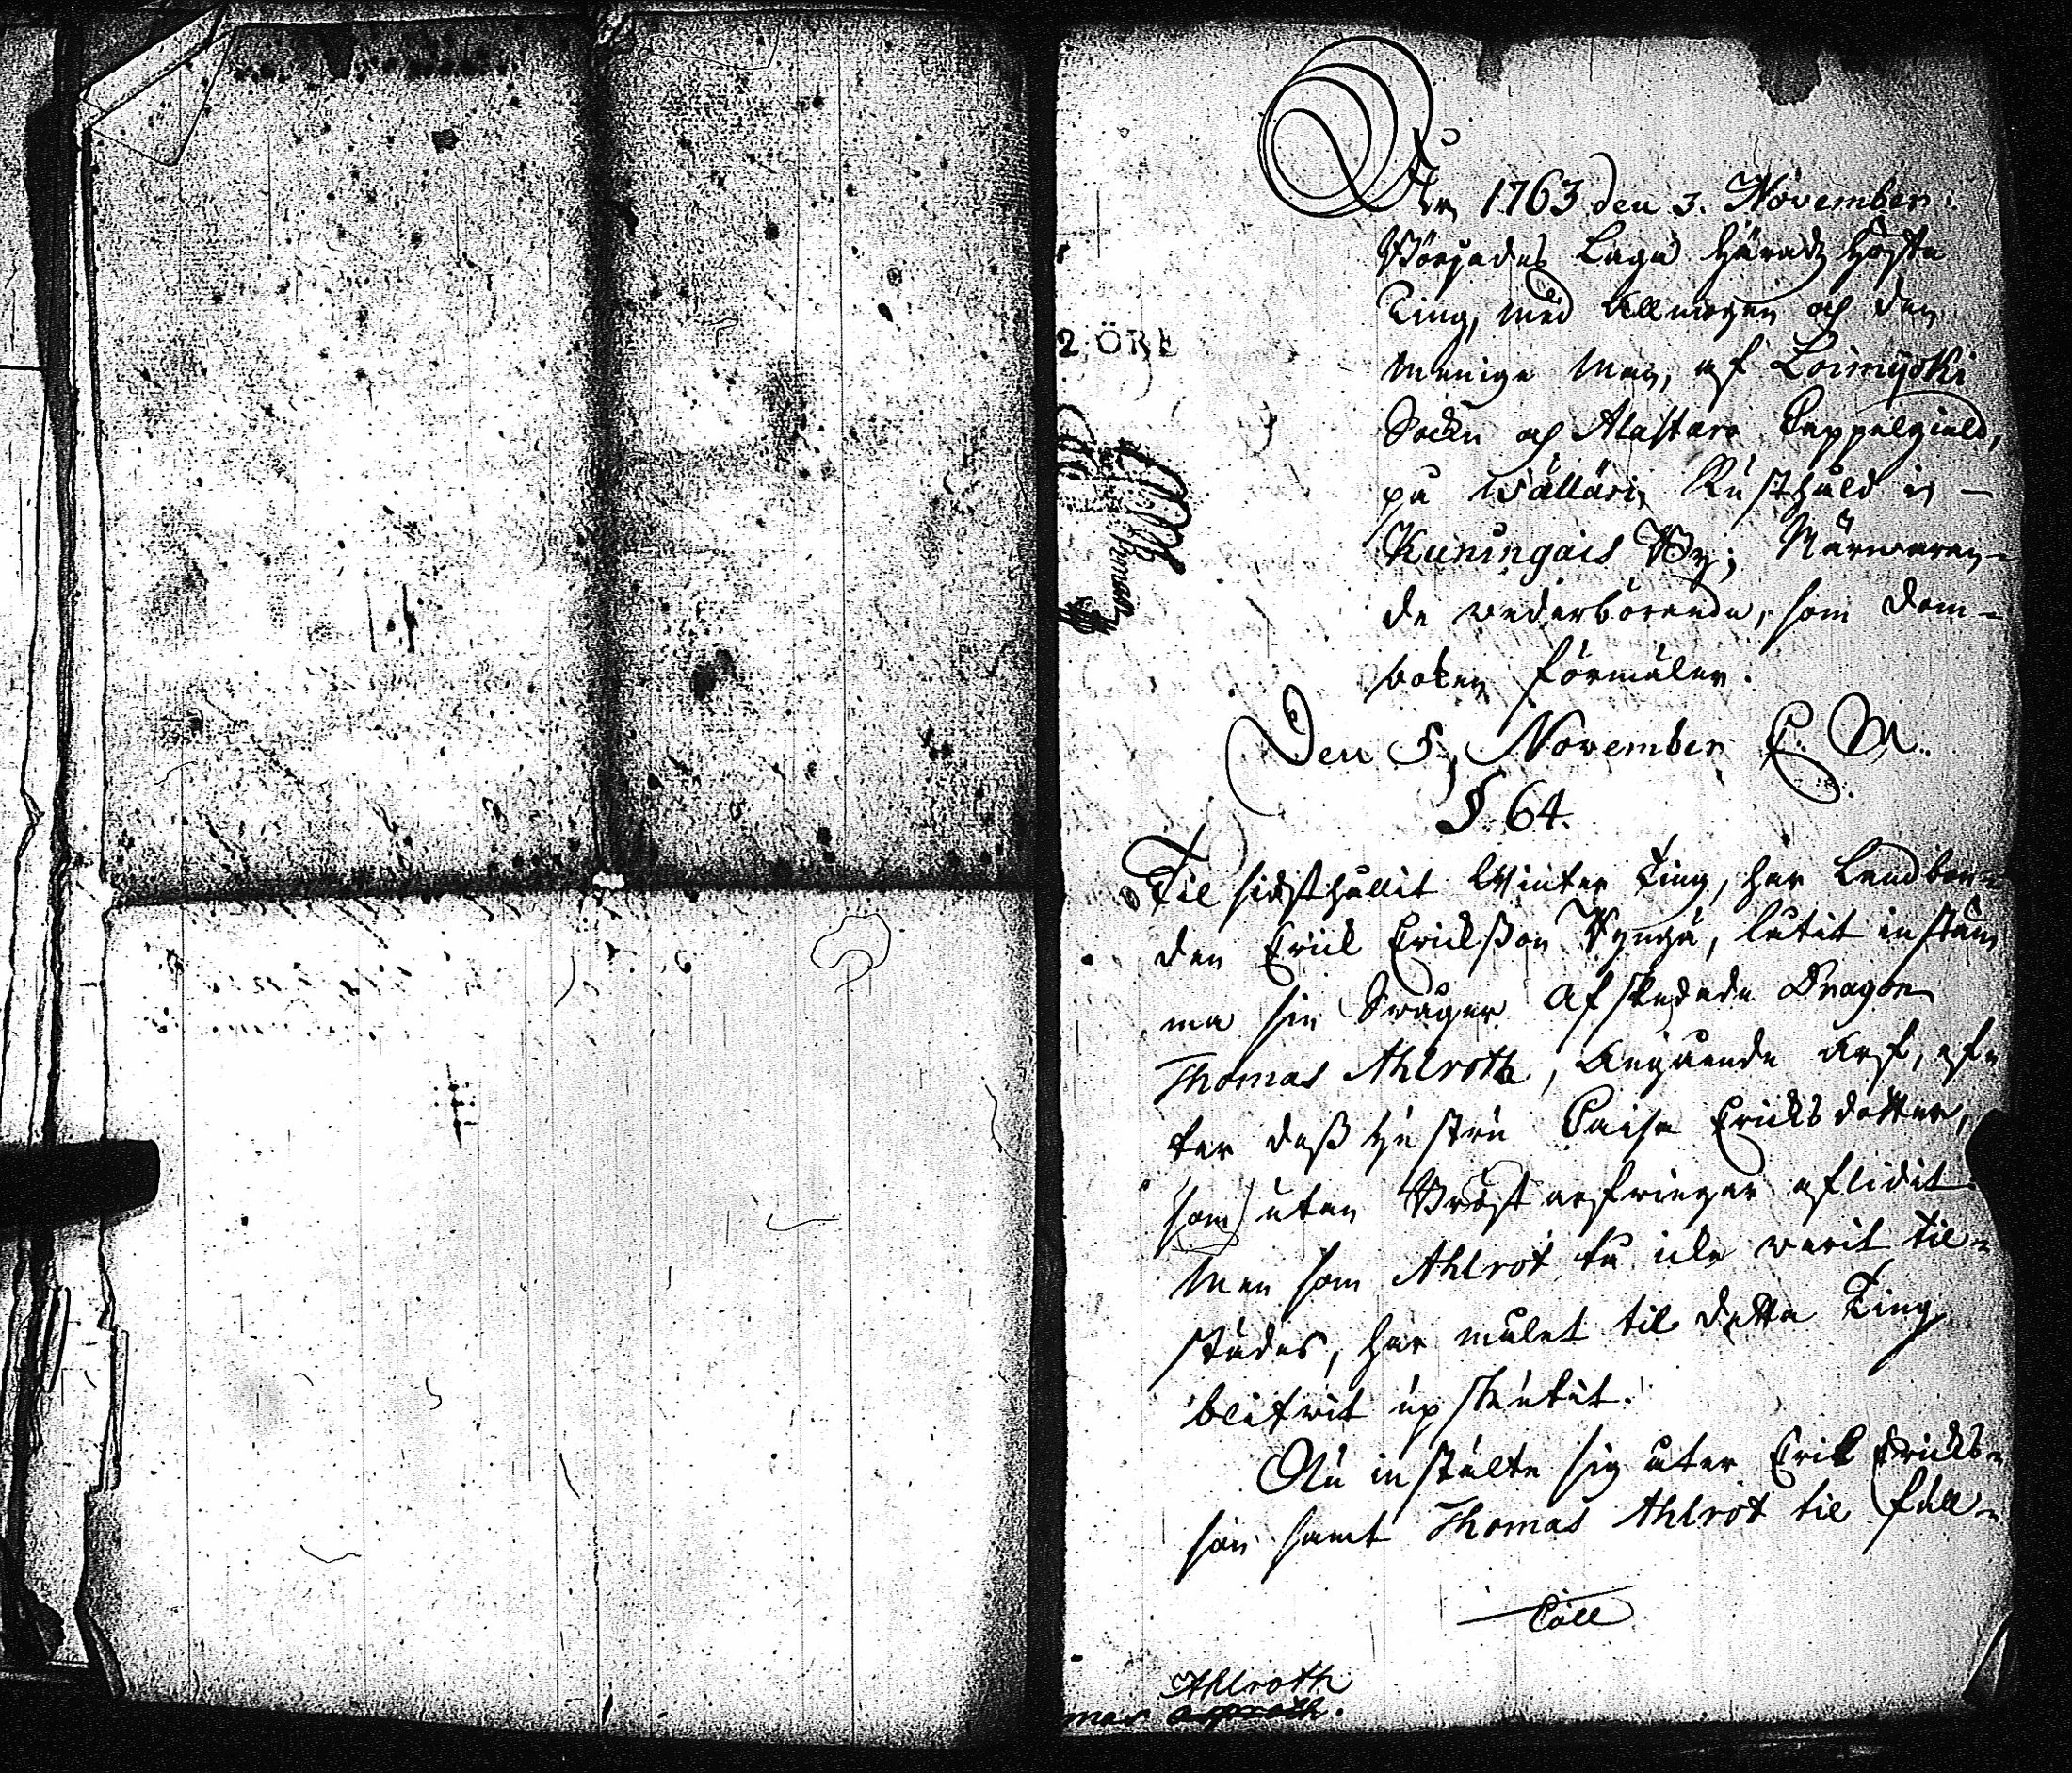 År 1763 den 3. November.
Börjades Laga Härads Höste
Ting, med Allmogen och den
menige Man, af Loimijoki
Sockn och Alastaro Cappelgield,
på Wälläri Rusthåld i
Kuningais By; Närwaran-
de wederbörande, som Dom-
boken förmäler.
Den 5. November E. M.
§ 64.
2 ÖRE
Til sidsthållit Winter Ting, har Landbon-
den Erick Erickßon låtit instäm
ma sin Swåger Afskedade Dragon
Thomas Ahlroth, Angående Arf, ef-
ter deß Hustru Caisa Ericksdotter,
som utan Bröstarfwingar aflidit
Men som Ahlrot då icke warit til-
städes, har målet til detta Ting
blifwit upskutit.
Nu instälte sig åter Erik Ericks-
son samt Thomas Ahlrot til fåll-
Ahlroth